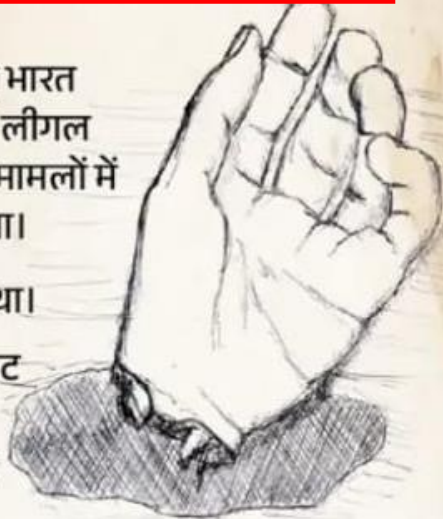 भारत
लीगल
मामलों में
था।
ट